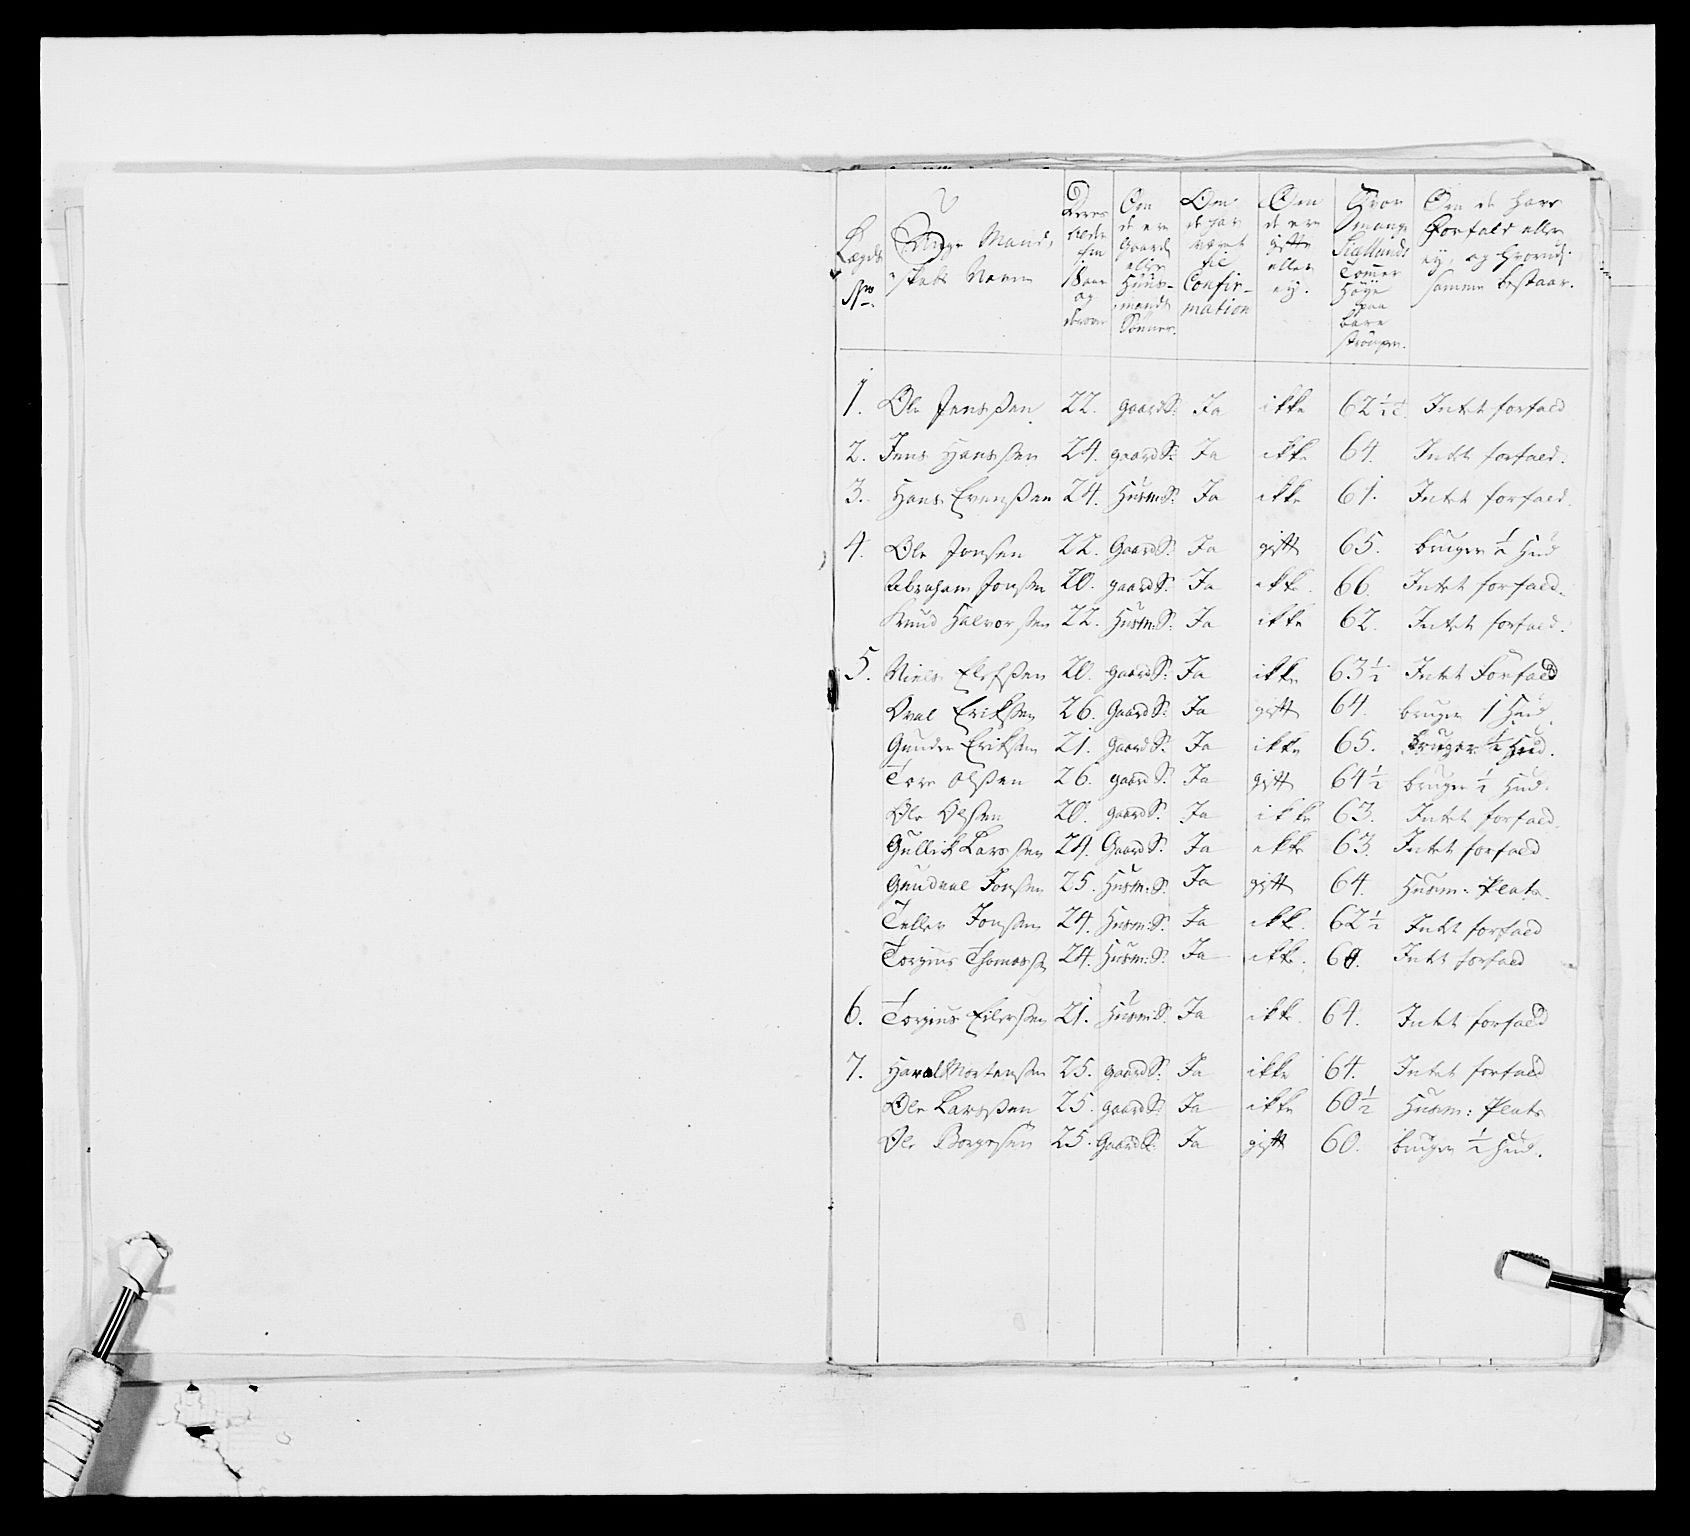 Lægds No.
Unge Mand-
skabs Navne
Deres
alder
fra
18 aar
og
derover
Om
de ere
Gaard
eller
Huus-
mands
Sønner.
Om
de har
været
til
Confir-
mation
Om
de ere
gifte
eller
ey.
Hvor
mange
Siællands
Tomer
Høye
paa
bare
strømper.
Om de have
Forfald eller
ey, og hvorudi
samme bestaar.
1. Ole Jenssen 22. gaardS: Ja ikke 62 1/2 Intet forfald
2. Jens Hanssen 24. gaardS: Ja ikke 64. Intet forfald.
3. Hans Evenssen 24. Husm:S: Ja ikke 61. Intet forfald.
4. Ole Jonsen 22. GaardS: Ja gift 65. bruger 1/2 Hud
Abraham Jonsen 20. gaardS: Ja ikke. 66. Intet forfald.
Knud Halvorsen 22. Husm:S: Ja ikke 62. Intet forfald.
5. Niels Elefssen 20. gaardS: Ja ikke 63 1/2 Intet Forfald
Erikssen 26. GaardS: Ja gift 64. bruger 1 Hud.
Gunder Eriksen 21. GaardS: Ja ikke 65. bruger 1/2 Hud.
Tore Olssen 26. gaardS: Ja gift 64 1/2 bruger 1/2 Hud.
Ole Olsen 20. gaardS: Ja ikke 63. Intet forfald.
Gullik Larssen 24. GaardS: Ja ikke 63. Intet forfald
Jonsen 25. Husm:S. Ja gift 64. Husm: Plads.
Tellev Jonsen 24. Husm:S. Ja ikke. 62 1/2 Intet forfald
Torgius Thomass 24. Husm:S. Ja ikke. Intet forfald
6. Torgius Eilerssen 21. Husm:S. Ja ikke. 64. Intet forfald
7. Haral Mortensen 25. gaardS: Ja ikke 64. Intet forfald
Ole Larssen 25. gaardS: Ja ikke 60 1/2 Husm: Plads
Ole Borgesen 25. GaardS: Ja gift 60. bruger 1/2 Hud.